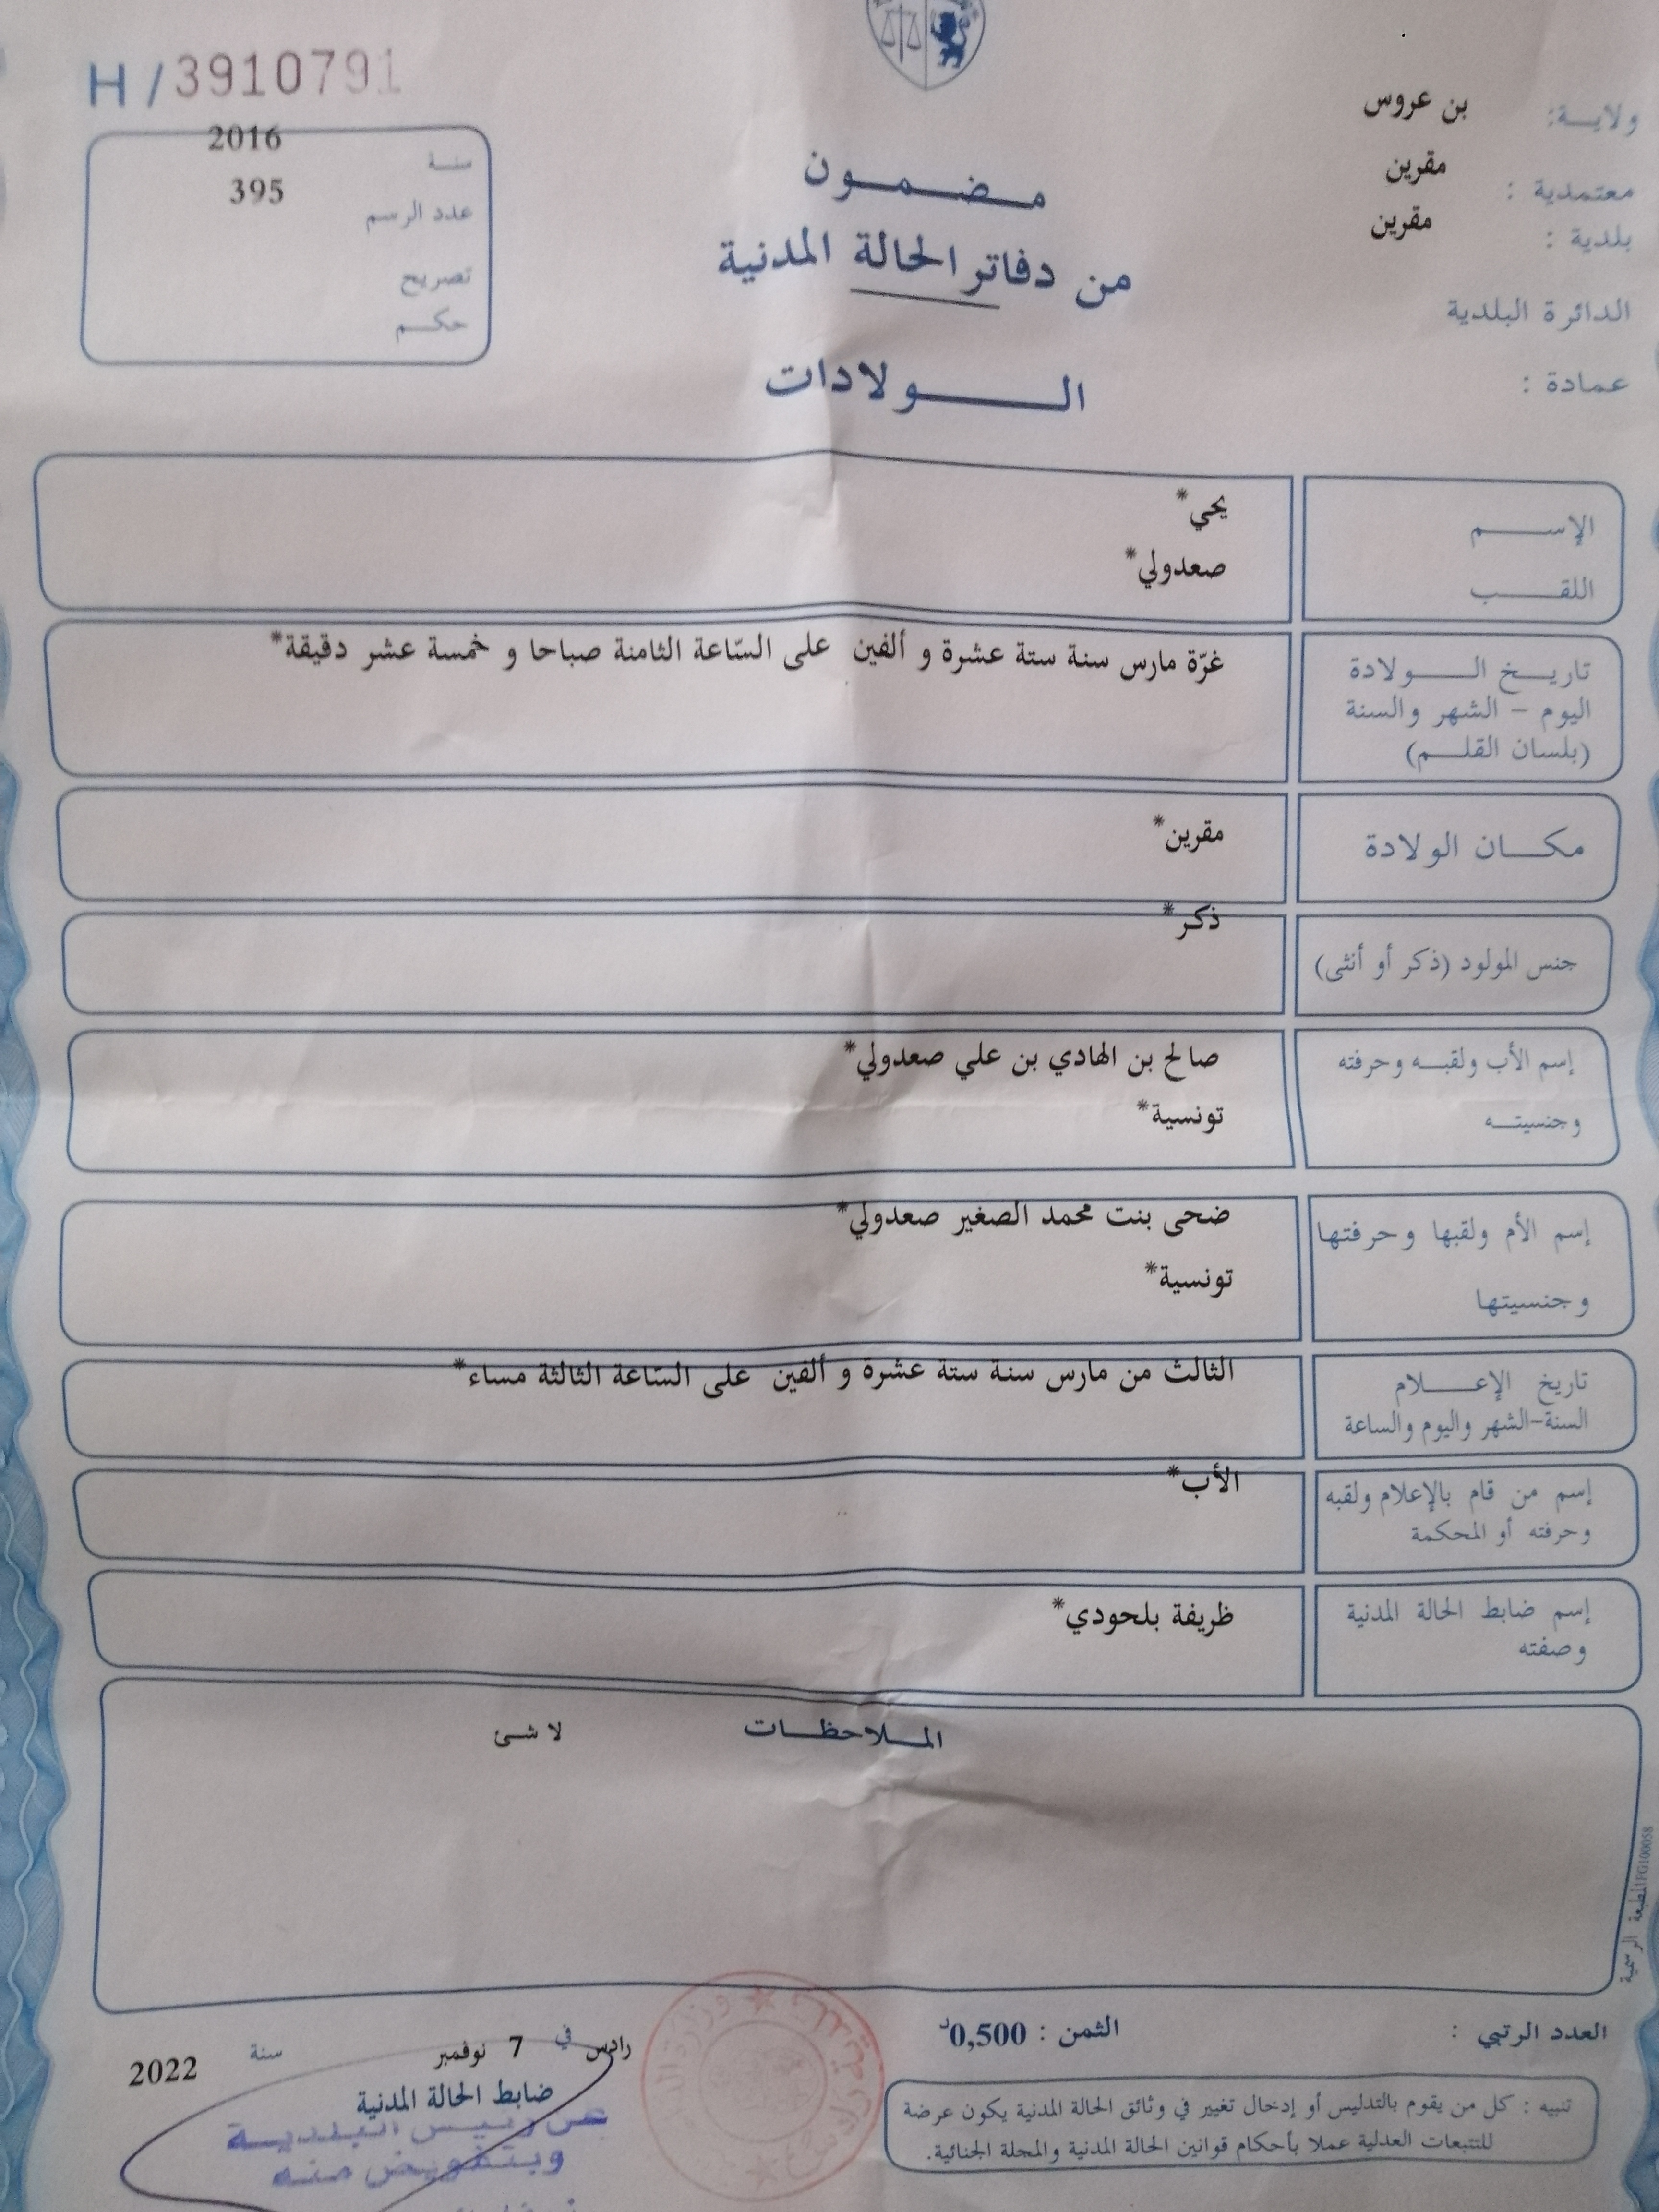 H / 3910791
ولاية: بن عروس
معتمدية : مقرين
بلدية : مقرين
الدائرة البلدية
عمادة :
سنة 2016
عدد الرسم 395
تصريح
حكم
مضمون
من دفاتر الحالة المدنية
الولادات
الإسم يحي*
اللقب صعدولي*
تاريخ الولادة غرّة مارس سنة ستة عشرة و ألفين على السّاعة الثامنة صباحا و خمسة عشر دقيقة*
اليوم - الشهر والسنة
(بلسان القلم)
مكان الولادة مقرين*
ذكر*
جنس المولود (ذكر أو أنثى)
إسم الأب ولقبه وحرفته صالح بن الهادي بن علي صعدولي*
وجنسيته تونسية*
إسم الأم ولقبها وحرفتها ضحى بنت محمد الصغير صعدولي*
وجنسيتها تونسية*
تاريخ الإعلام الثالث من مارس سنة ستة عشرة و ألفين على السّاعة الثالثة مساء*
السنة-الشهر واليوم والساعة
إسم من قام بالإعلام ولقبه الأب*
وحرفته أو المحكمة
إسم ضابط الحالة المدنية ظريفة بلحودي*
وصفته
الملاحظات لا شئ
المطبعة الرسمية FG100058
العدد الرتبي :
الثمن : 0,500د
رادس في 7 نوفمبر سنة 2022
ضابط الحالة المدنية
عن رئيس البلدية
وبتفويض منه
تنبيه : كل من يقوم بالتدليس أو إدخال تغيير في وثائق الحالة المدنية يكون عرضة
للتتبعات العدلية عملا بأحكام قوانين الحالة المدنية والمجلة الجنائية.